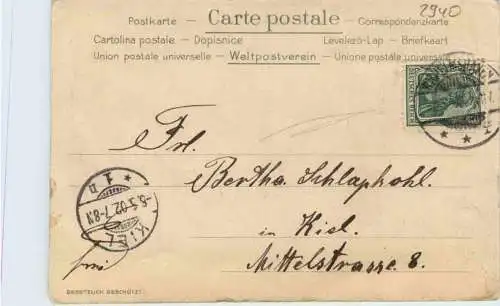 2940
Postkarte - Carte postale - Correspondenzkarte
Cartolina postale - Dopisnice Levelező-Lap - Briefkaart
Union postale universelle - Weltpostverein - Unione postale universale
Frl.
Bertha Schlaphohl.
in Kiel.
Mittelstrasse 8.
frei
KIEL
1
-6.5.02.7-8N
GESETZLICH GESCHÜTZT.